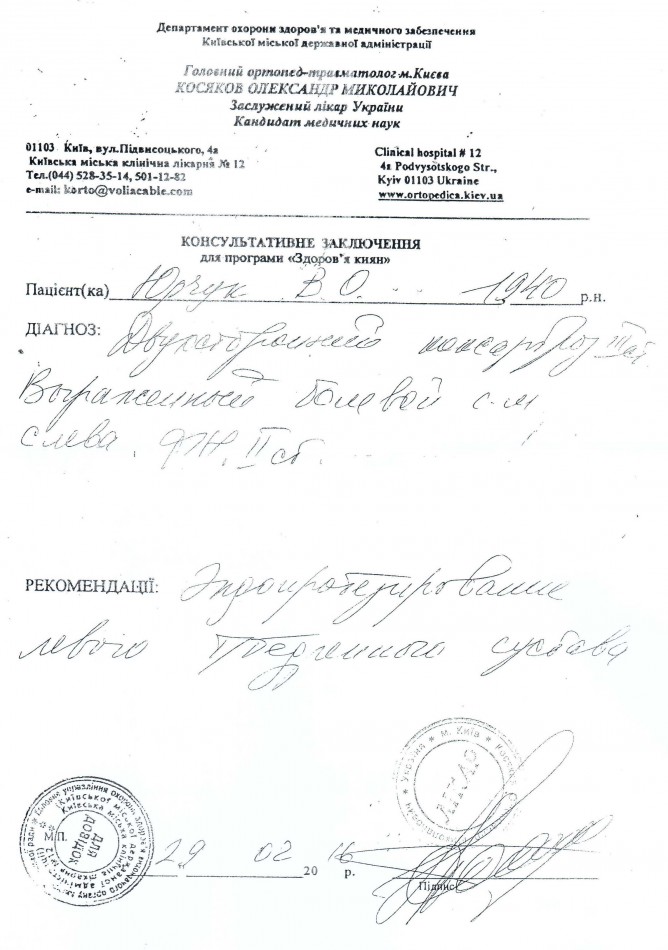 Департамент охорони здоров'я та медичного забезпечення
Київської міської державної адміністрації
Головний ортопед-травматолог м.Києва
КОСЯКОВ ОЛЕКСАНДР МИКОЛАЙОВИЧ
Заслужений лікар України
Кандидат медичних наук
01103 Київ, вул.Підвисоцького, 4а
Київська міська клінічна лікарня № 12
Тел.(044) 528-35-14, 501-12-82
e-mail: korto@voliacable.com
Clinical hospital # 12
4a Podvysotskogo Str.,
Kyiv 01103 Ukraine
www.ortopedica.kiev.ua
КОНСУЛЬТАТИВНЕ ЗАКЛЮЧЕННЯ
для програми «Здоров'я киян»
Пацієнт(ка) Юрчук В.О. 1940 р.н.
ДІАГНОЗ: Двухсторонний коксартроз III ст.
Выраженный болевой с-м
слева. II ст.
РЕКОМЕНДАЦІЇ: Эндопротезирование
левого тазобедренного сустава
Україна * м. Київ *
ЛІКАР
М.П.
ДЛЯ
ДОВІДОК
29 02 2016 р.
Підпис